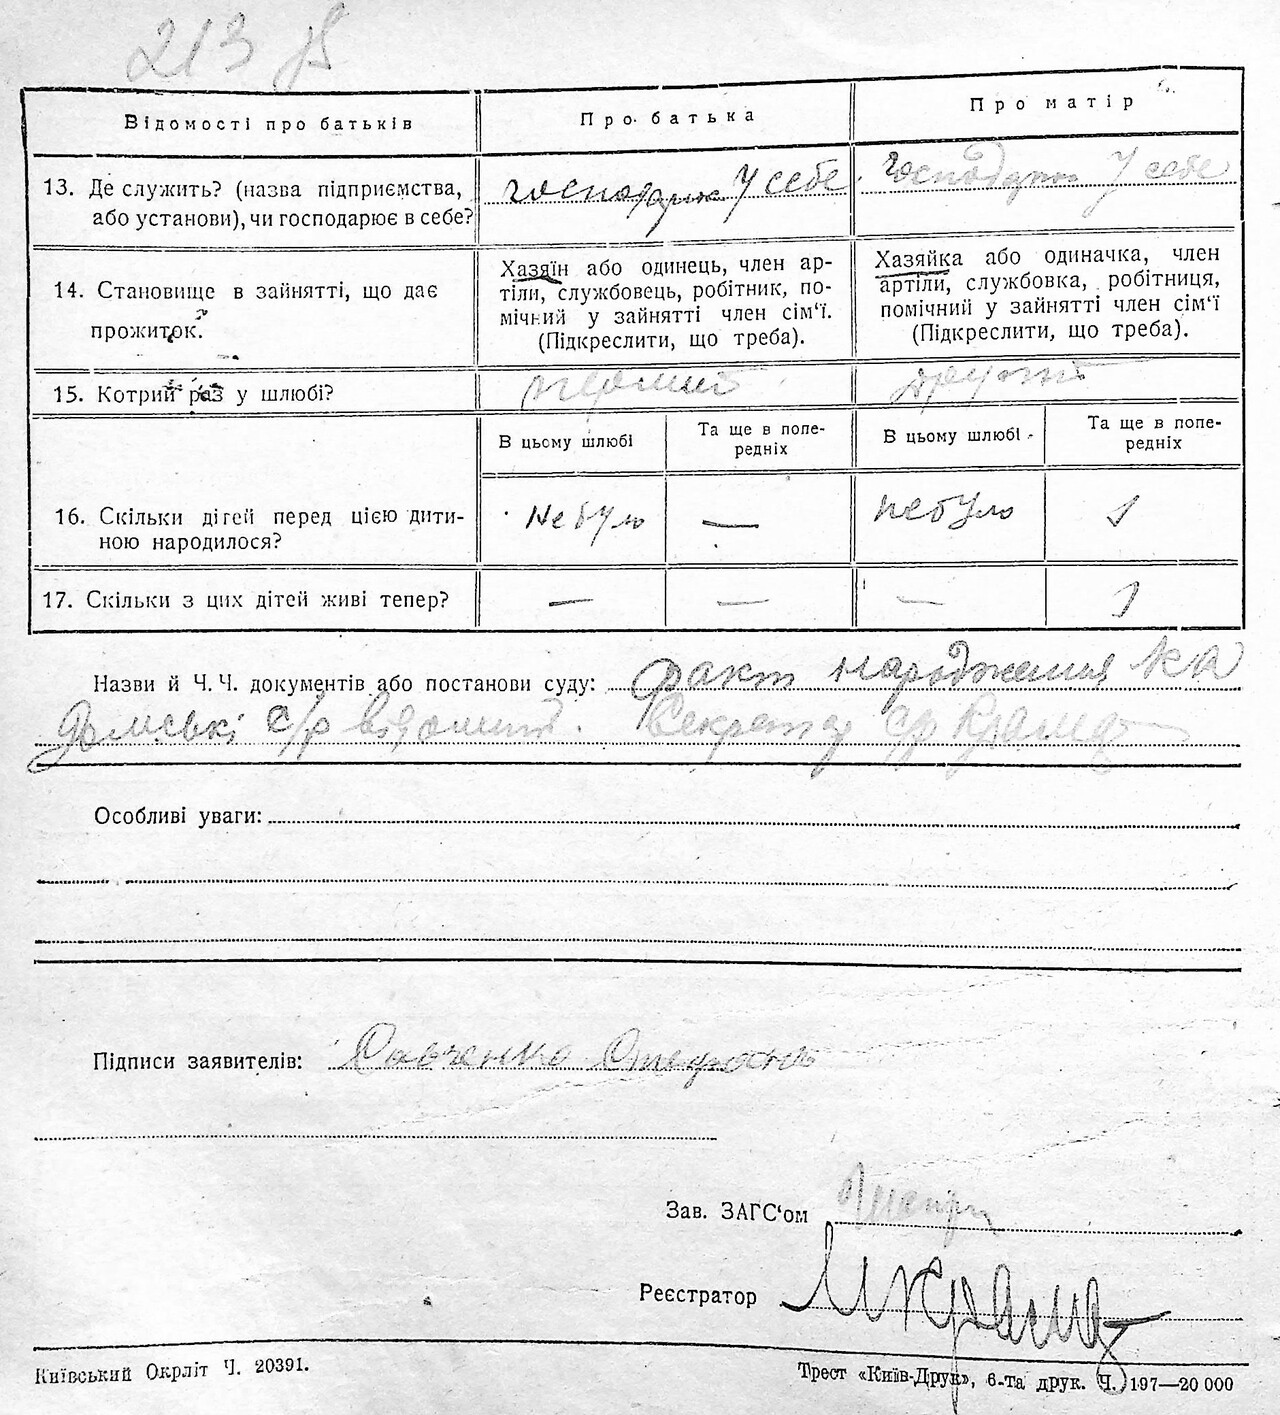 213 зв
Відомості про батьків
Про батька
Про матір
13. Де служить? (назва підприємства,
або установи), чи господарює в себе?
господарює У себе
господарює У себе
14. Становище в зайнятті, що дає
прожиток.
Хазяїн або одинець, член ар-
тіли, службовець, робітник, по-
мічний у зайнятті член сім'ї.
(Підкреслити, що треба).
Хазяйка або одиначка, член
артіли, службовка, робітниця,
помічний у зайнятті член сім'ї
(Підкреслити, що треба).
15. Котрий раз у шлюбі?
перший
другий
В цьому шлюбі
Та ще в попе-
редніх
В цьому шлюбі
Та ще в попе-
редніх
16. Скільки дітей перед цією дити-
ною народилося?
Не було
—
не було
1
17. Скільки з цих дітей живі тепер?
—
—
—
1
Назви й Ч. Ч. документів або постанови суду: факт народження
с/р відомий. Секретар с/р
Особливі уваги:
Підписи заявителів: Савченко Степан
Зав. ЗАГС'ом
Реєстратор
Київський Окрліт Ч. 20391.
Трест «Київ-Друк», 6-та друк. Ч. 197—20 000